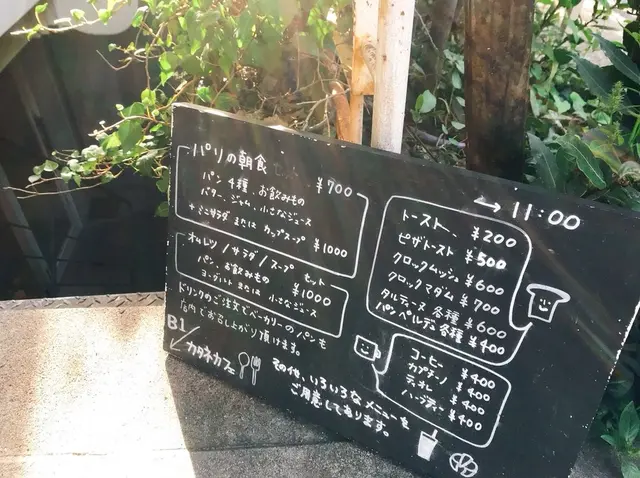 パリの朝食 セット ¥700
パン4種、お飲みもの
バター、ジャム、小さなジュース
+ミニサラダ または カップスープ ¥1000
オムレツ/サラダ/スープ セット
パン、お飲みもの ¥1000
ヨーグルト または 小さなジュース
ドリンクのご注文でベーカリーのパンも
店内でお召し上がり頂けます。
B1
カタネカフェ
11:00
トースト、 ¥200
ピザトースト ¥500
クロックムッシュ ¥600
クロックマダム ¥700
タルティーヌ 各種 ¥600
パンペルデュ 各種 ¥400
コーヒー ¥400
カプチーノ ¥400
ティオレ ¥400
ハーブティー ¥400
その他、いろいろなメニューを
ご用意してあります。